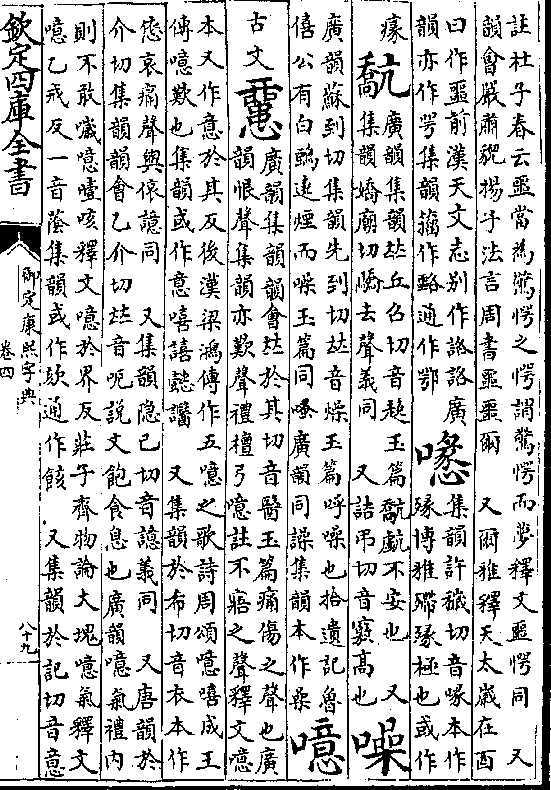 註杜子春云噩當為驚愕之愕謂驚愕而夢釋文噩愕同 又
韻會嚴肅貌揚子法言周書噩噩爾 又爾雅釋天太歲在酉
曰作噩前漢天文志別作詻詻廣
韻亦作咢集韻䕾作㗉通作鄂 㗿 集韻許穢切音喙本作
㾱博雅㱦㾱極也或作
瘃 𠿕 廣韻集韻𠀤丘召切音趬玉篇𠿕𧇾不安也 又
集韻嬌廟切憍去聲義同 又詰弔切音竅高也 噪
廣韻蘇到切集韻先到切𠀤音燥玉篇呼噪也拾遺記魯
僖公有白鵶遶煙而噪玉篇同𠾂廣韻同譟集韻本作喿 噫
古文 𢣏 廣韻集韻韻會𠀤於其切音醫玉篇痛傷之聲也廣
韻恨聲集韻亦歎聲禮檀弓噫註不寤之聲釋文噫
本又作意於其反後漢梁鴻傳作五噫之歌詩周頌噫嘻成王
傳噫歎也集韻或作意嘻譆懿譩 又集韻於希切音衣本作
㥋哀痛聲與偯譩同 又集韻隱已切音譩義同 又唐韻於
介切集韻韻會乙介切𠀤音呃說文飽食息也廣韻噫氣禮內
則不敢噦噫嚏咳釋文噫於界反莊子齊物論大塊噫氣釋文
噫乙戒反一音蔭集韻或作欬通作餩 又集韻於記切音意
欽定四庫全書
御定康熙字典
卷四
八十九